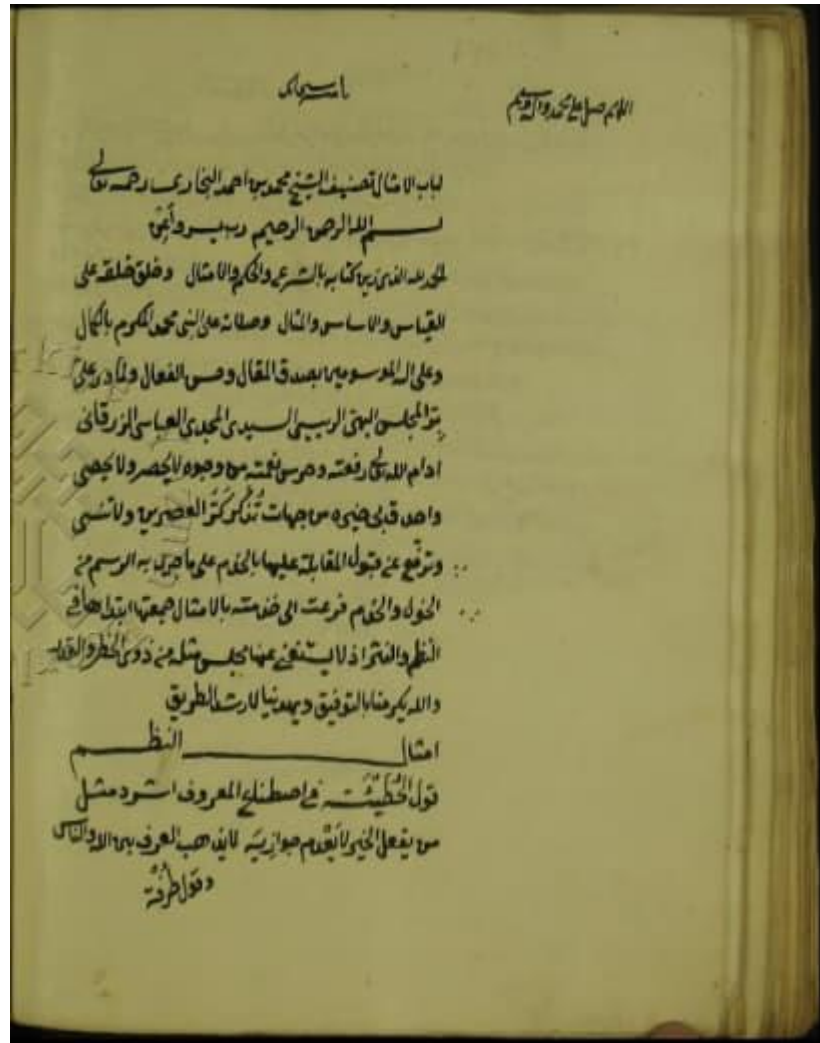 اللهم صل على محمد واله وسلم
باسمه سبحانه
لباب الامثال تصنيف الشيخ محمد بن احمد البخاري رحمه تعالى
بسم الله الرحمن الرحيم رب يسر وأعن
الحمد لله الذي زين كتابه بالشرع والحكم والامثال وخلق خلقه على
القياس والاساس والمثال وصلاته على النبي محمد المكرم بالكمال
وعلى اله الموسومين بصدق المقال وحسن الفعال ولما در علي
المجلس البهي الرييسي السيدي المجدي العباسي الزرقاني
ادام الله تعالى رفعته وحرس نعمته من وجوه لا يحصر ولا يحصى
من جهات تذكر كر العصرين ولا تنسى
وترفع عن قبول المقابلة عليها بالخدم على ما جرى به الرسم من
الخول والخدم فرعت الى خدمته بالامثال جمعتها في
النظم والنثر اذ لا يستغني عنها مجلس مثله من ذوي الخطر والقدر
والله يكرمنا بالتوفيق ويهدينا لارشد الطريق
امثال النظم
قول الحُطَيْئَة في اصطناع المعروف اشرد مثل
من يفعل الخير لا يعدم جوازيه لا يذهب العرف بين الله والناس
وقول طرفة